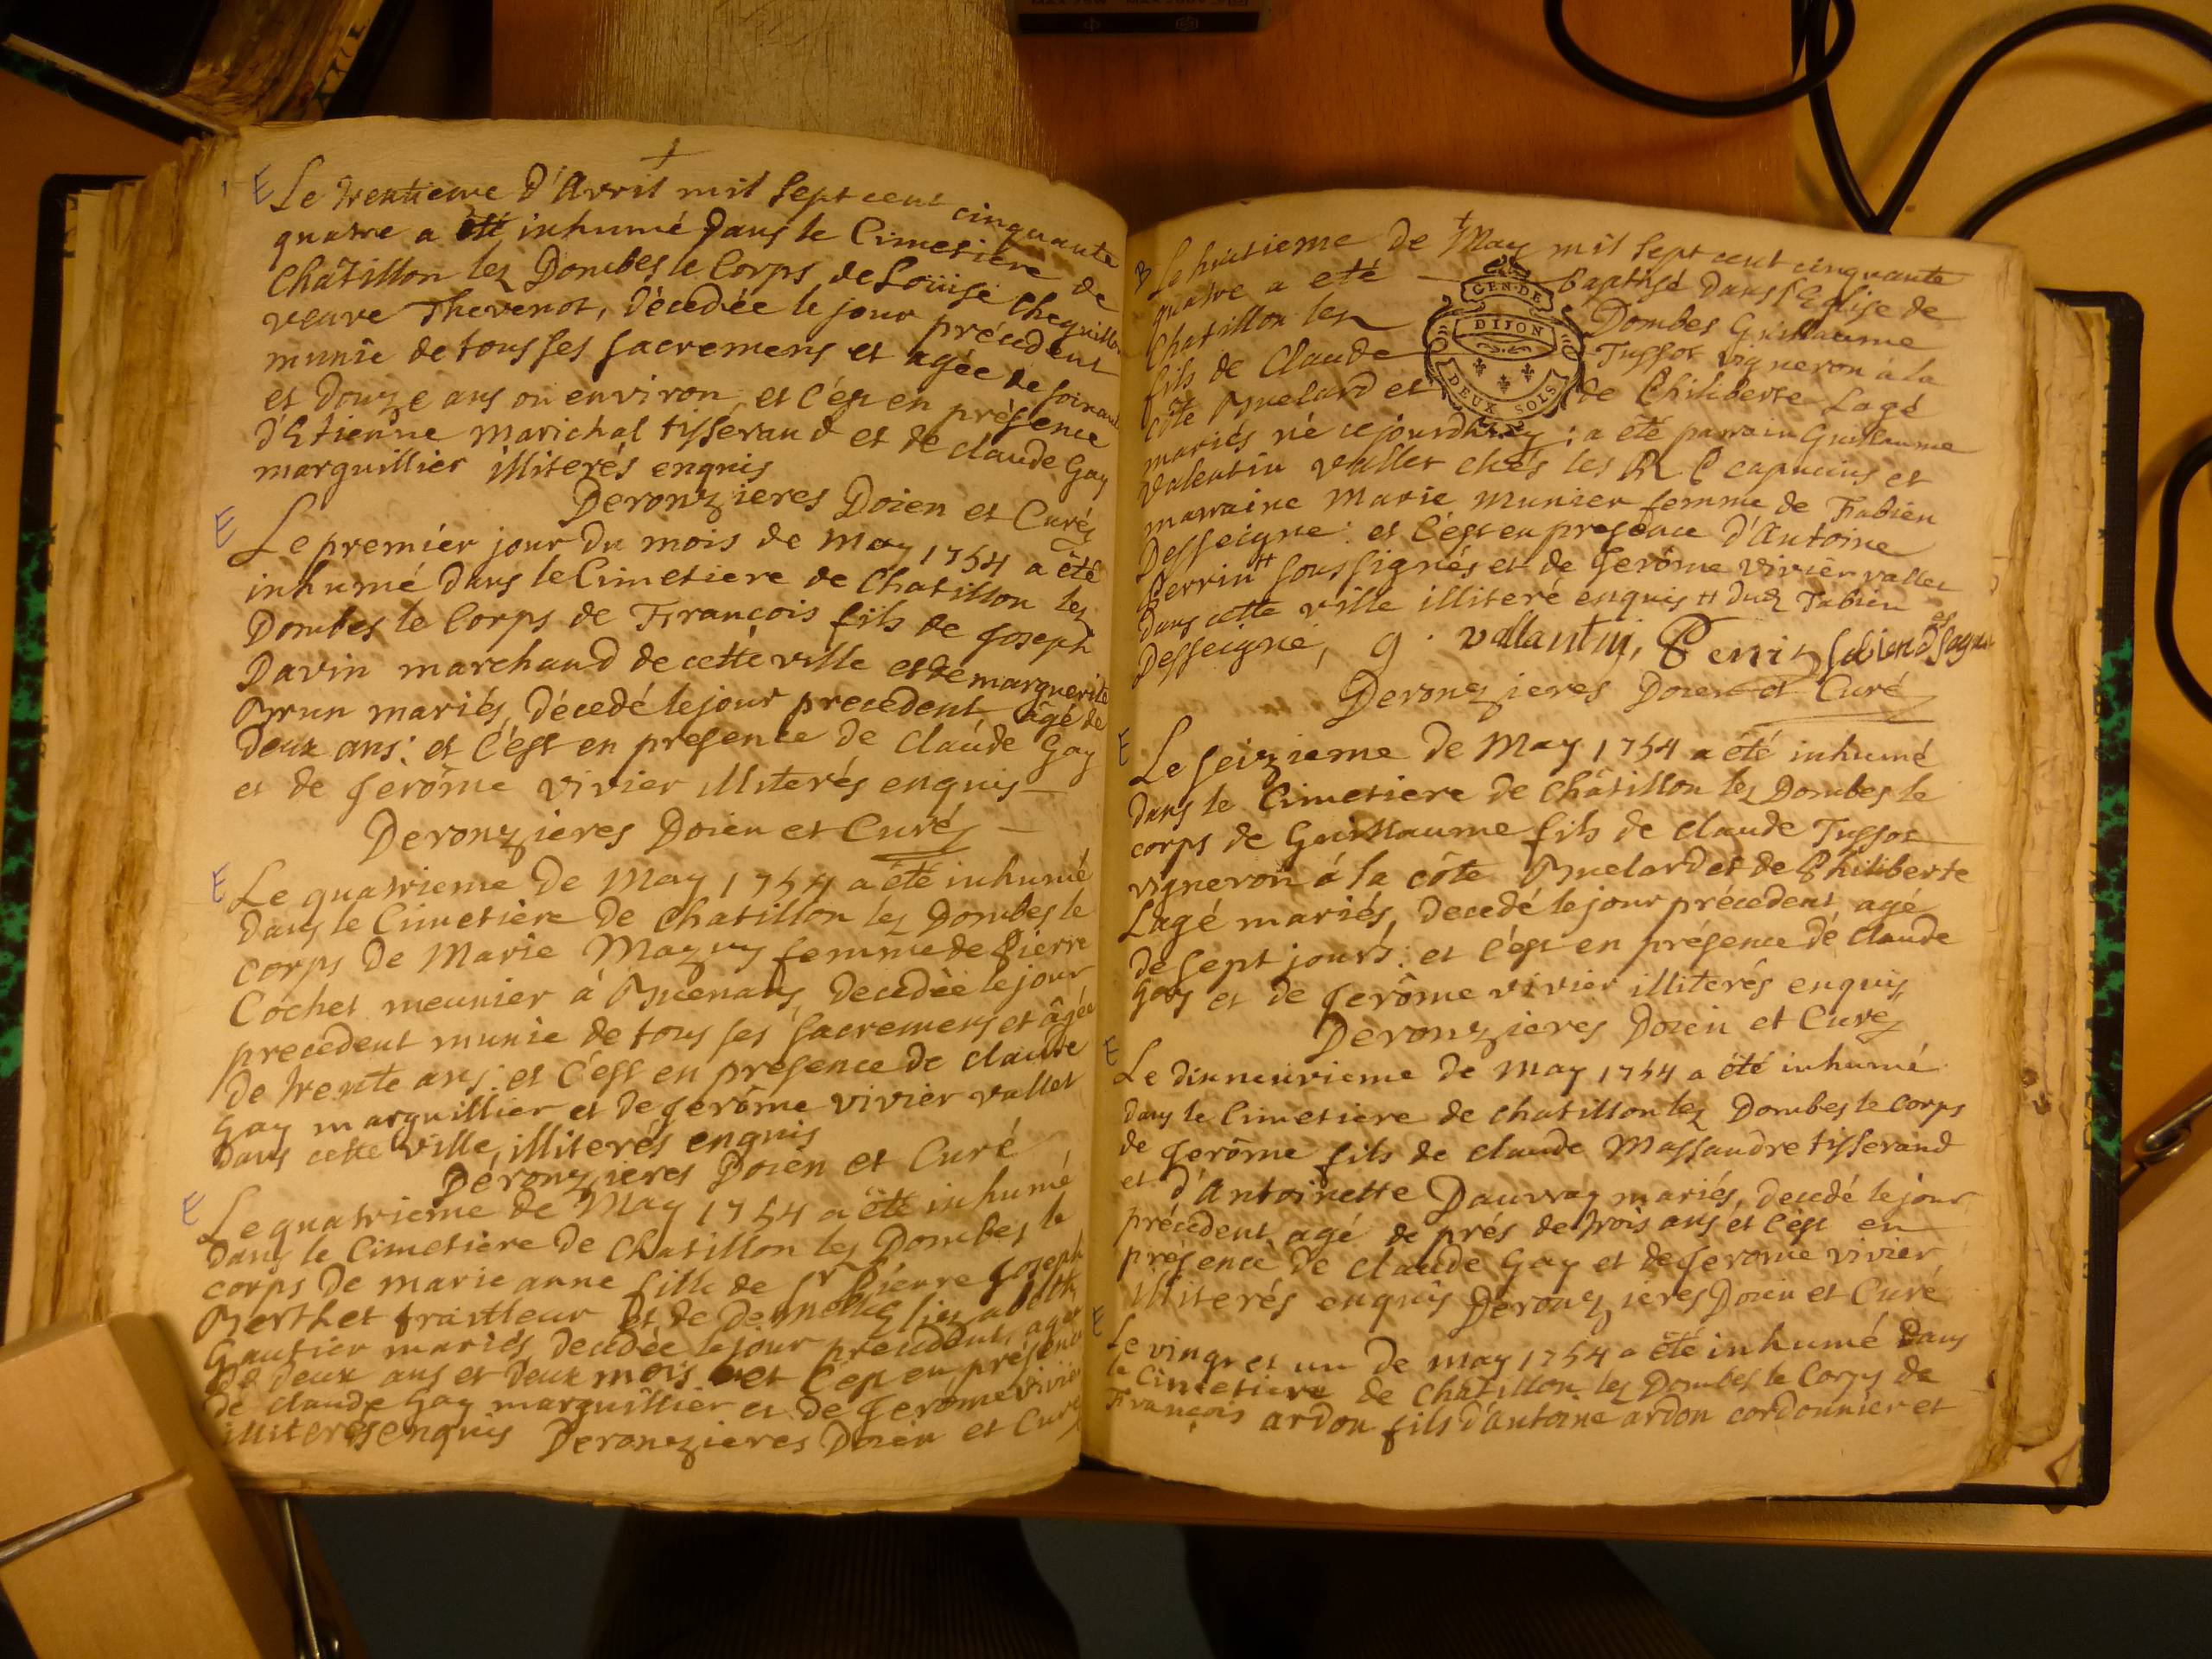 E Le trentieme D'Avril mil sept cent cinquante
quatre a été inhumé Dans le Cimetière de
Châtillon lez Dombes le Corps de Loüise Chequillon
veuve Thevenot, décedée le jour précedent
munie de tous ses sacremens et agée de soixante
et Douze ans ou environ et c'est en présence
d'Etienne Marichal tisserand et de claude Gay
marguillier illiterés enquis
Deronzieres Doien et Curé
E Le premier jour du mois de may 1754 a été
inhumé Dans le Cimetiere de Chatillon lez
Dombes le Corps de François fils de Joseph
Davin marchand de cette ville et de marguerite
Brun mariés, décedé le jour precedent âgé de
Deux ans: et c'est en presence de Claude Gay
et de Jerôme vivier illiterés enquis
Deronzieres Doien et Curé
E Le quatrieme de May 1754 a été inhumé
Dans le Cimetière de Chatillon lez Dombes le
corps de Marie Mazuy femme de Pierre
Cochet meunier à Buenans, decedée le jour
precedent munie de tous ses sacremens et âgée
de trente ans: et c'est en presence de claude
Gay marguillier et de Jerôme vivier vallet
Dans cette ville, illiterés enquis
Deronzieres Doien et Curé
E Le quatrieme de May 1754 a été inhumé
Dans le Cimetiere de Chatillon lez Dombes le
corps de marie anne fille de Sr Pierre Joseph
Berthet traitteur et de demlle Elizabeth
Gautier mariés, decedée le jour precedent, agée
de deux ans et deux mois et c'est en présence
de claude Gay marguillier et de Jerome vivier
illiterés enquis Deronzieres Doien et Curé
B Le huitieme de May mil sept cent cinquante
quatre a eté baptisé Dans l'Eglise de
Chatillon lez Dombes Guillaume
fils de Claude Tussot vigneron à la
côte Buelard et de Philiberte Lagé
mariés né ce jourdhuy: a été parrain Guillaume
Valentin vallet chés les RR PP capucins et
marraine Marie Munier femme de Fabien
Desseigne: et c'est en presence d'Antoine
Perrin # soussignés et de Jerôme vivier vallet
Dans cette ville illiteré enquis # dud Fabien
Desseigne, g. vallantin, Perrin, fabien desagne
Deronzieres Doien et Curé
GEN. DE
DIJON
DEUX SOLS
E Le seizieme de May 1754 a été inhumé
Dans le Cimetiere de Châtillon lez Dombes le
corps de Guillaume fils de claude Tussot
vigneron á la côte Buelard et de Philiberte
Lagé mariés, decedé le jour précedent agé
de sept jours: et c'est en présence de claude
Gay et de Jerôme vivier illiterés enquis
Deronzieres Doien et Curé
E Le dixneuvieme de may 1754 a été inhumé
Dans le Cimetiere de chatillon lez Dombes le corps
de Jerôme fils de claude Massandre tisserand
et d'Antoinette Dauvray mariés, decedé le jour
précedent agé de prés de trois ans et c'est en
présence de claude Gay et de Jerome vivier
illiterés enquis Deronzieres Doien et Curé
E Le vingt et un de may 1754 a été inhumé Dans
le Cimetiere de Châtillon lez Dombes le Corps de
François ardon fils d'antoine ardon cordonnier et